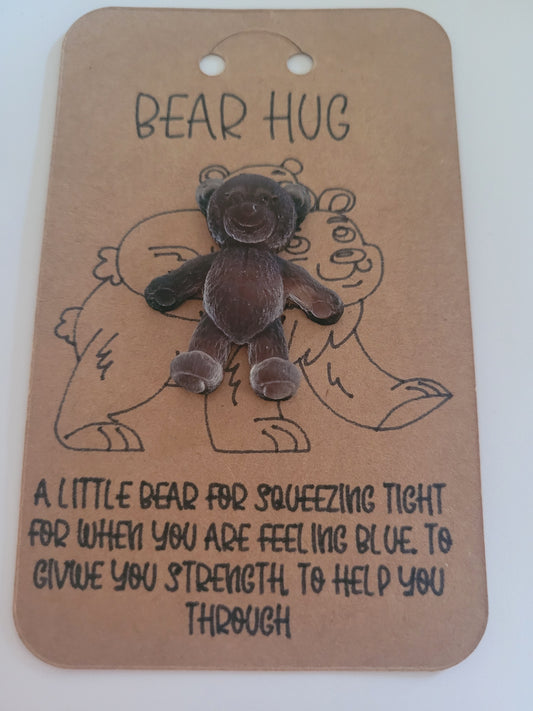 BEAR HUG
A LITTLE BEAR FOR SQUEEZING TIGHT
FOR WHEN YOU ARE FEELING BLUE. TO
GIVWE YOU STRENGTH, TO HELP YOU
THROUGH